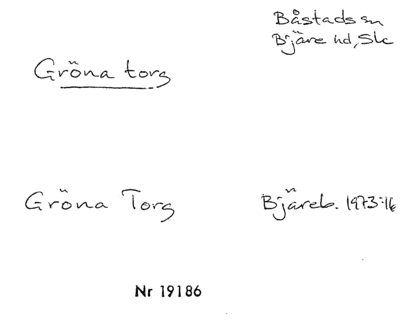 Båstads sn
Bjäre hd, Sk
Gröna torg
Gröna Torg
Bjäreb. 1973:16
Nr 19186